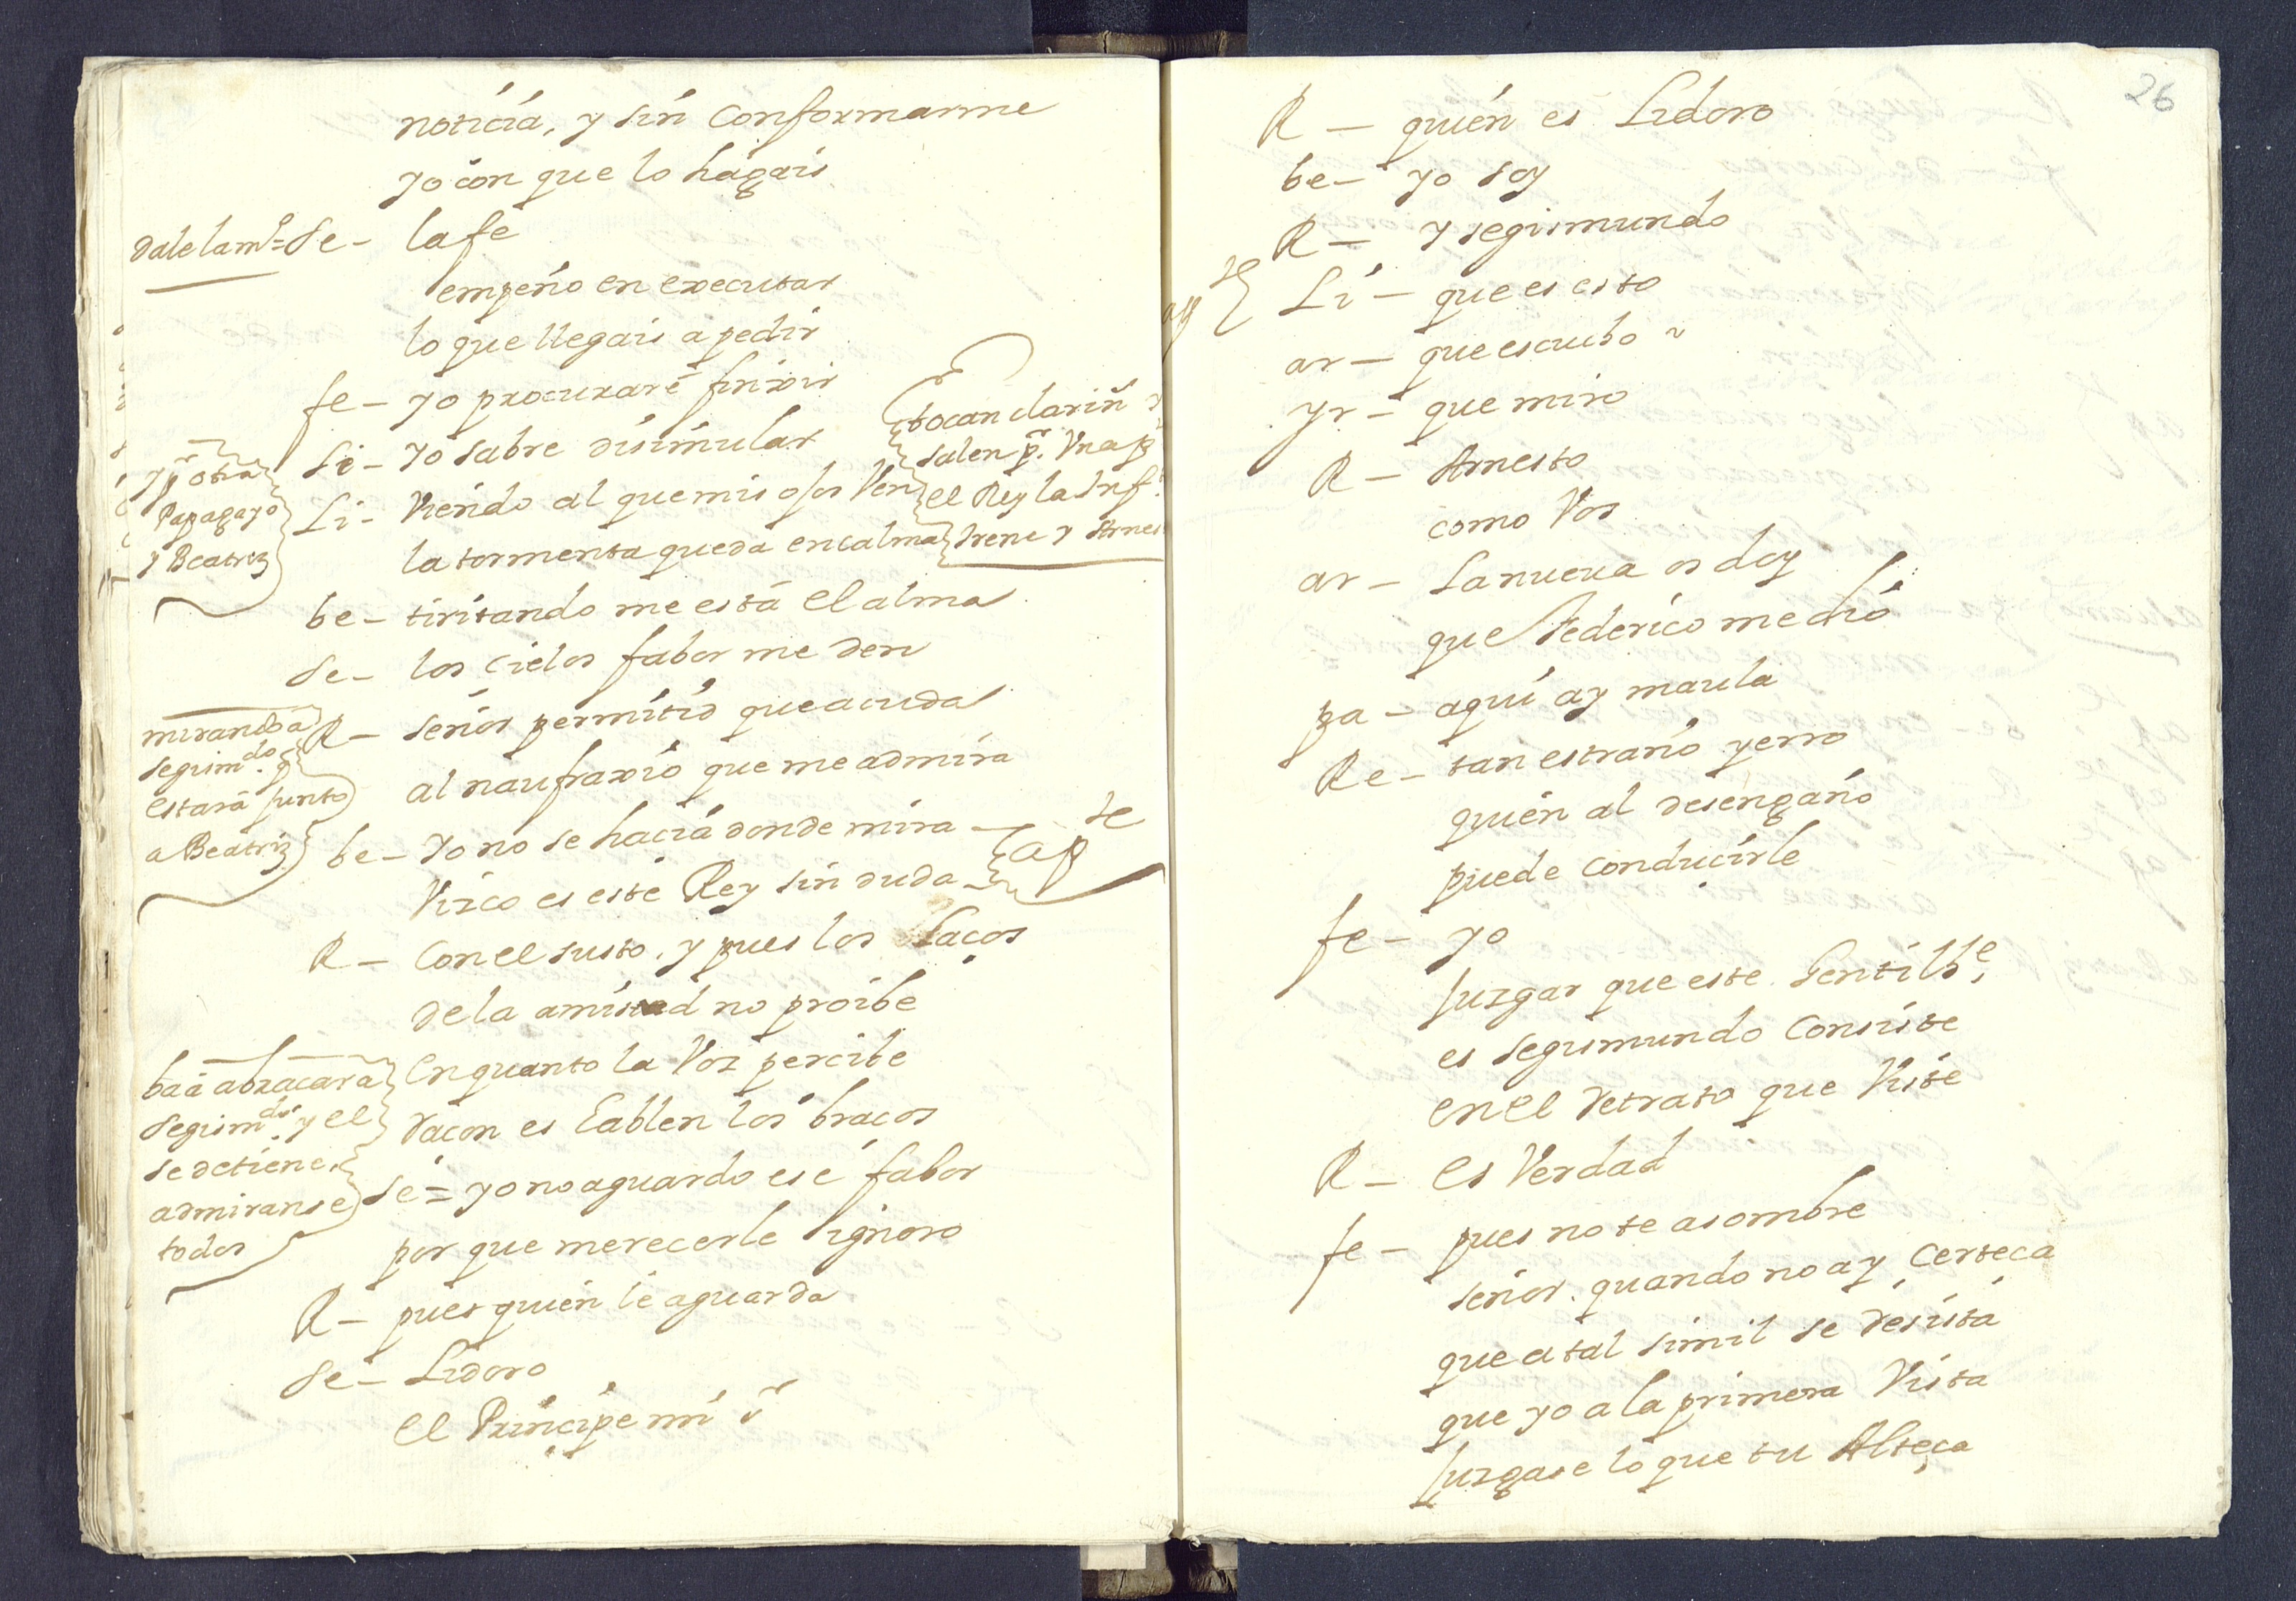 noticia, y sin conformarme
yo con que lo hagais
dale la mº =
se - la fe
empeño en executar
lo que llegais a pedir
fe - yo procuraré finxir
tocan clarin y
salen pr. Una p
el Rey la Inf.
Irene y Arnes
Si - yo sabre disimular
y pr otra
Papagayo
y Beatriz
Li - Viendo al que mis ojos Ven
la tormenta queda en calma
be - tiritando me está el alma
se - los cielos fabor me den
mirando a
segismdo. q
estará junto
a Beatriz
R - señor permitid que acuda
al naufraxio que me admira
be - yo no se hacia donde mira
Vizco es este Rey sin duda
apte
R - Con el susto, y pues los Laços
de la amistad no proibe
ba a abraçar a
Segismdo. y el
se detiene,
admiranse
todos
en quanto la Voz percibe
raçon es Eablen los braços
se = yo no aguardo ese fabor
por que merecerle ignoro
R - pues quien le aguarda
se - Lidoro
el Principe mi sr
26
R - quien es Lidoro
be - yo soy
R - y segismundo
apte
Li - que es esto
ar - que escucho
yr - que miro
R - Arnesto
como Vos
ar - La nueua os doy
que Federico me dió
pa - aqui ay maula
Re - tan estraño yerro
quien al desengaño
puede conducirle
fe - yo
Juzgar que este Gentilhe,
es Segismundo Consiste
en el retrato que Viste
R - es Verdad
fe - pues no te asombre
señor. quando no ay Certeça
que a tal simil se resista
que yo a la primera Vista
Juzgase lo que tu Alteça